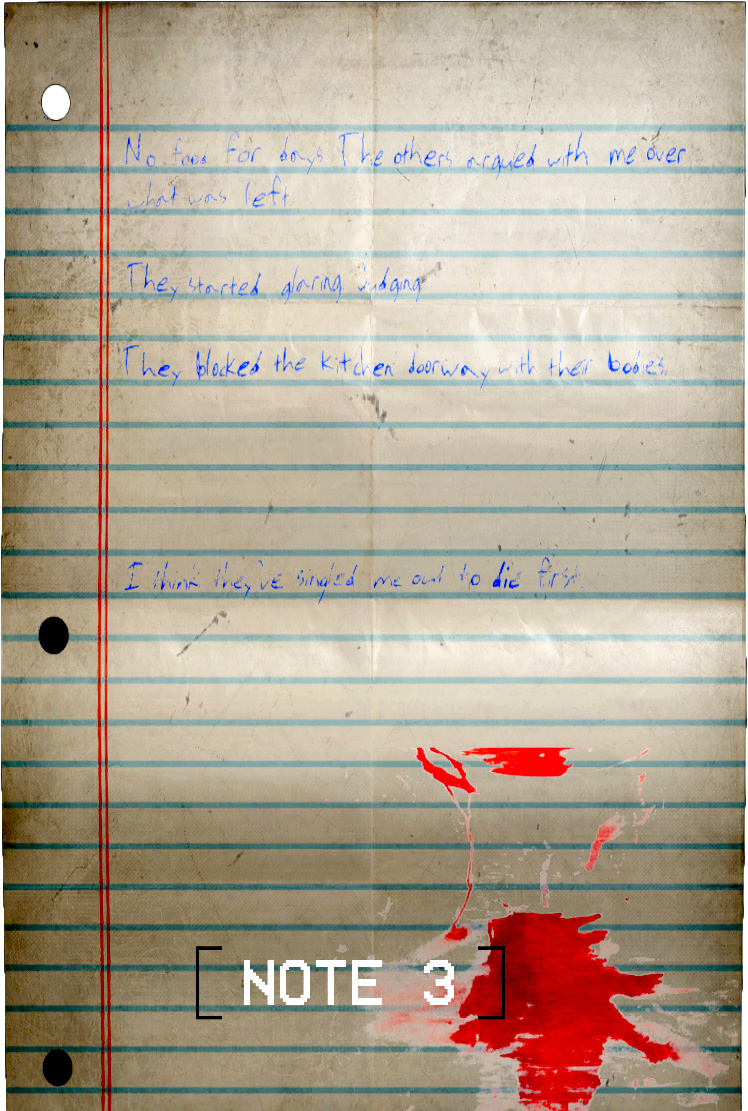 No food for days The others argued with me over
what was left
They started glaring Judging
They blocked the kitchen doorway with their bodies.
I think they've singled me out to die first.
[NOTE 3]